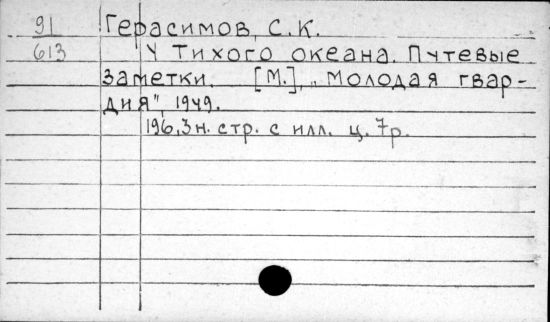 91 Герасимов, С.К.
613 У Тихого океана. Путевые
заметки. [М.], „Молодая гвар-
дия", 1949.
196,3н. стр. с илл. ц. 7р.